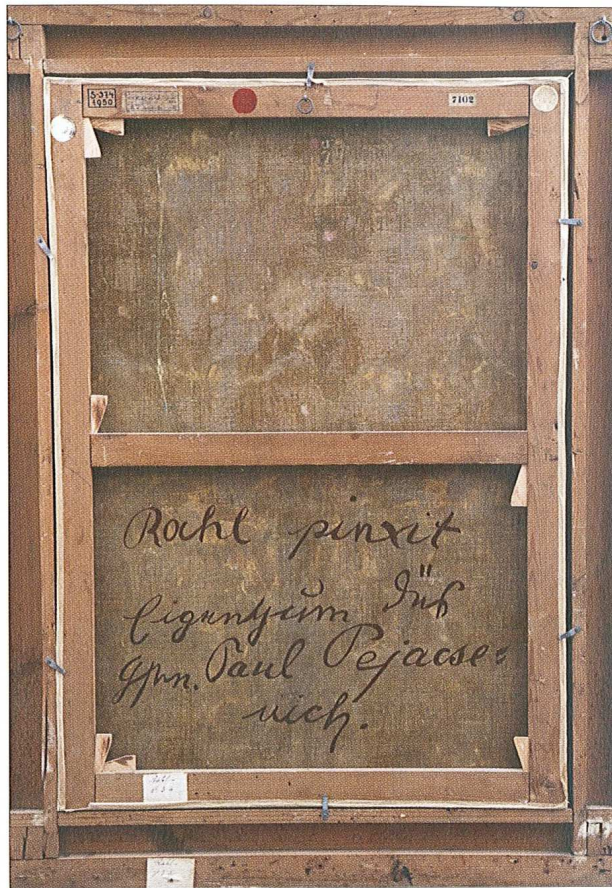 S-374
1950
7102
Rahl pinxit
Eigenthum des
Gfen. Paul Pejacse=
vich.